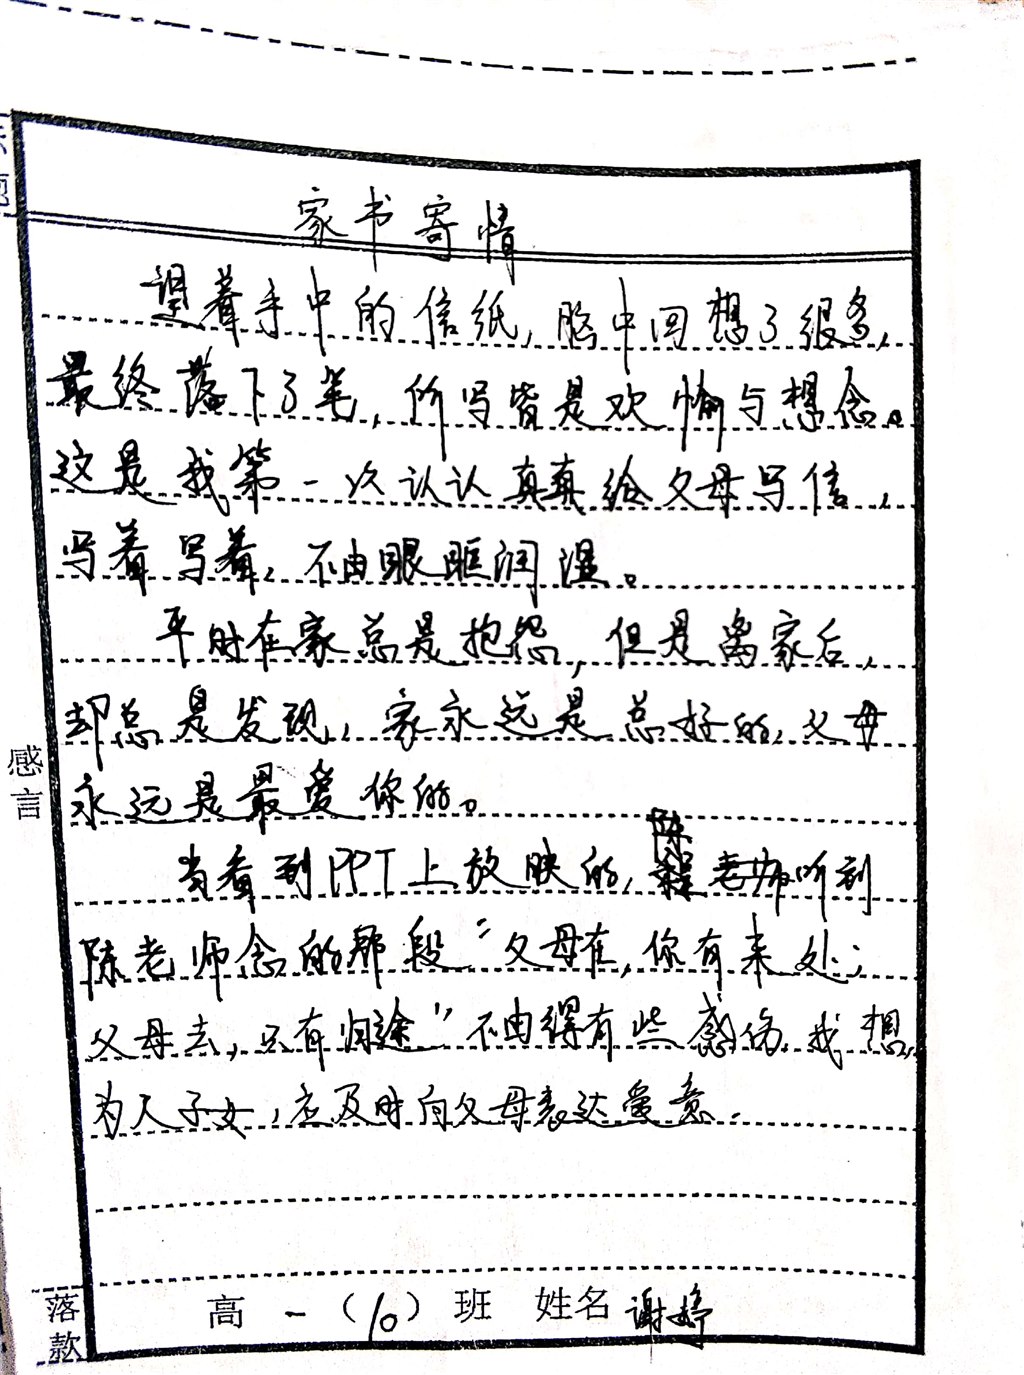 题
家书寄情
望着手中的信纸，脑中回想了很多，
最终落下了笔，所写皆是欢愉与想念。
这是我第一次认认真真给父母写信，
写着写着，不由眼眶润湿。
平时在家总是抱怨，但是离家后，
却总是发现，家永远是总好的，父母
永远是最爱你的。
感言
当看到PPT上放映的，陈老师听到
陈老师念的那段“父母在，你有来处；
父母去，只有归途”不由得有些感伤，我想，
为人子女，应及时向父母表达爱意。
落款
高一（10）班 姓名 谢婷